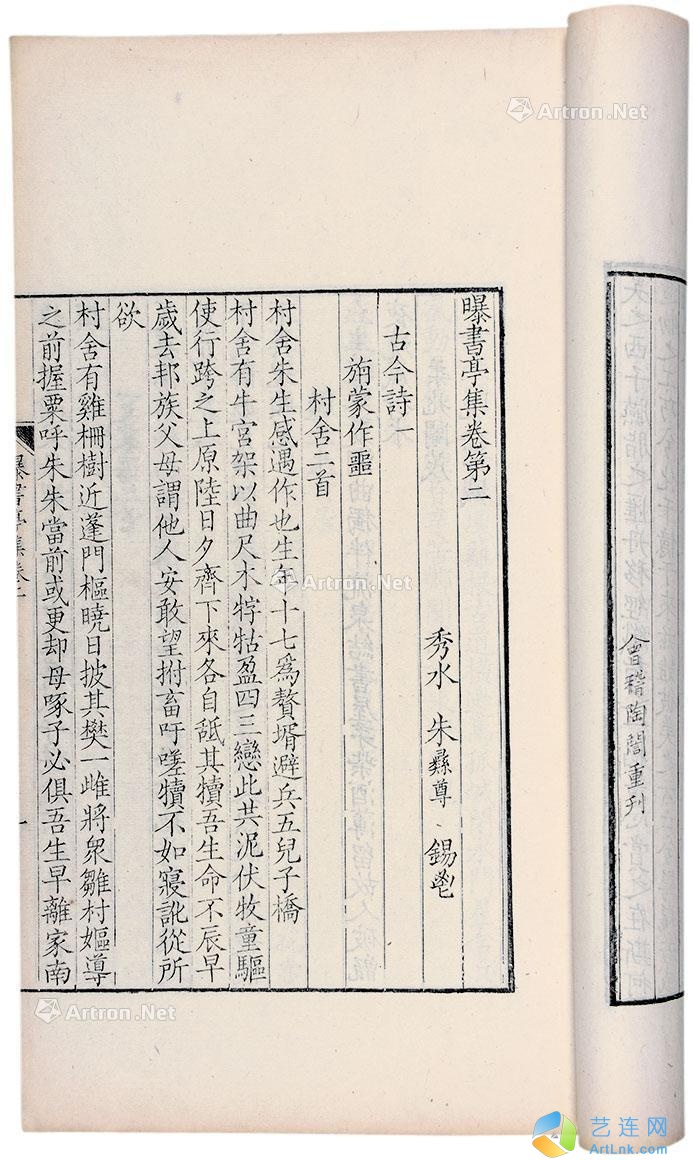 會稽陶誾重刊
曝書亭集卷第二
秀水 朱彝尊 錫鬯
古今詩一
旃蒙作噩
村舍二首
村舍朱生感遇作也生年十七爲贅壻避兵五兒子橋
村舍有牛宮架以曲尺木牸牯盈四三戀此共泥伏牧童驅
使行跨之上原陸日夕齊下來各自舐其犢吾生命不辰早
歲去邦族父母謂他人安敢望拊畜吁嗟犢不如寢訛從所
欲
村舍有雞柵樹近蓬門樞曉日披其樊一雌將衆雛村嫗導
之前握粟呼朱朱當前或更却母啄子必俱吾生早離家南
曝書亭集卷二
一
Artron.Net
Artron.Net
Artron.Net
Artron.Net
艺连网
ArtLnk.com